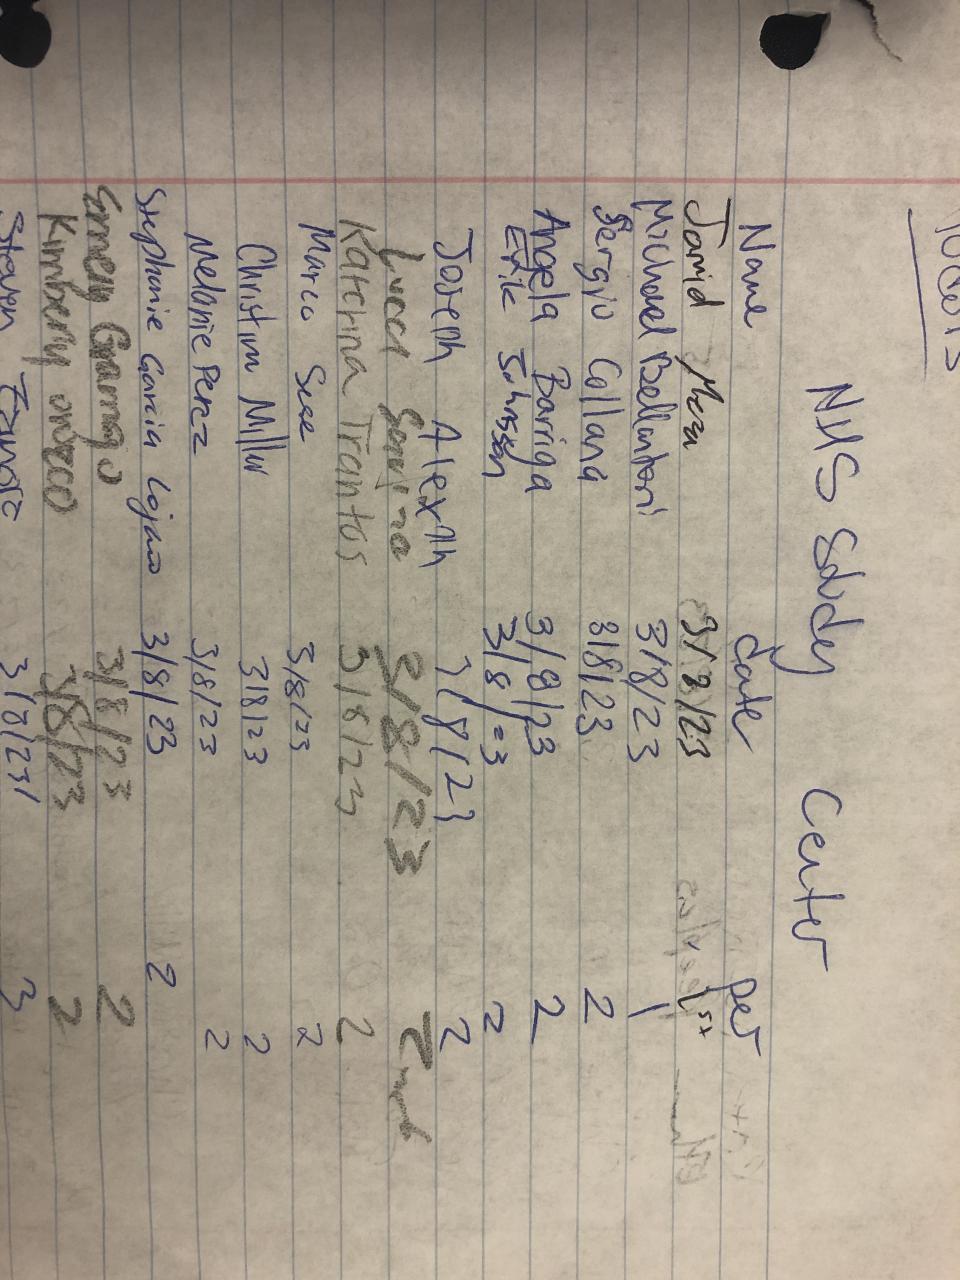 NHS Study Center
Name date per
Javid 3/8/23 1st
Michael Bellantoni 3/8/23 1
Sergio Collana 3/8/23 2
Angela Barriga 3/8/23 2
Erik Johnson 3/8/23 2
Joseph Alexth 3/8/23 2
3/8/23 2
Katerina Trantos 3/8/23 2
Marco 3/8/23 2
Christian Miller 3/8/23 2
Melanie Perez 3/8/23 2
Stephanie Garcia Lojano 3/8/23 2
3/8/23 2
Kimberly orozco 3/8/23 2
Steven 3/8/23 3